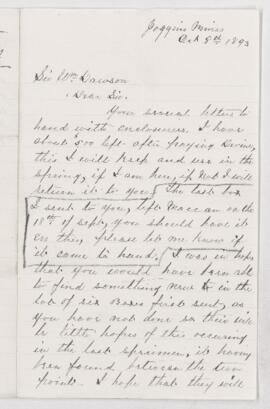 Joggins Mines
Oct 9th 1893
Sir Wm Dawson
Dear Sir.
Your several letters to
hand with enclosures. I have
about $5.00 left after paying Devine,
this I will keep and use in the
spring, if I am here, if not I will
return it to you. The last box
I sent to you, left Maccan on the
18th of Sept, you should have it
ere this, please let me know if
it come to hand. I was in hopes
that you would have been able
to find something new in the
lot of six Boxes first sent, as
you have not done so there will
be little hopes of this occuring
in the last specimen, it having
been found between the two
points. I hope that they will